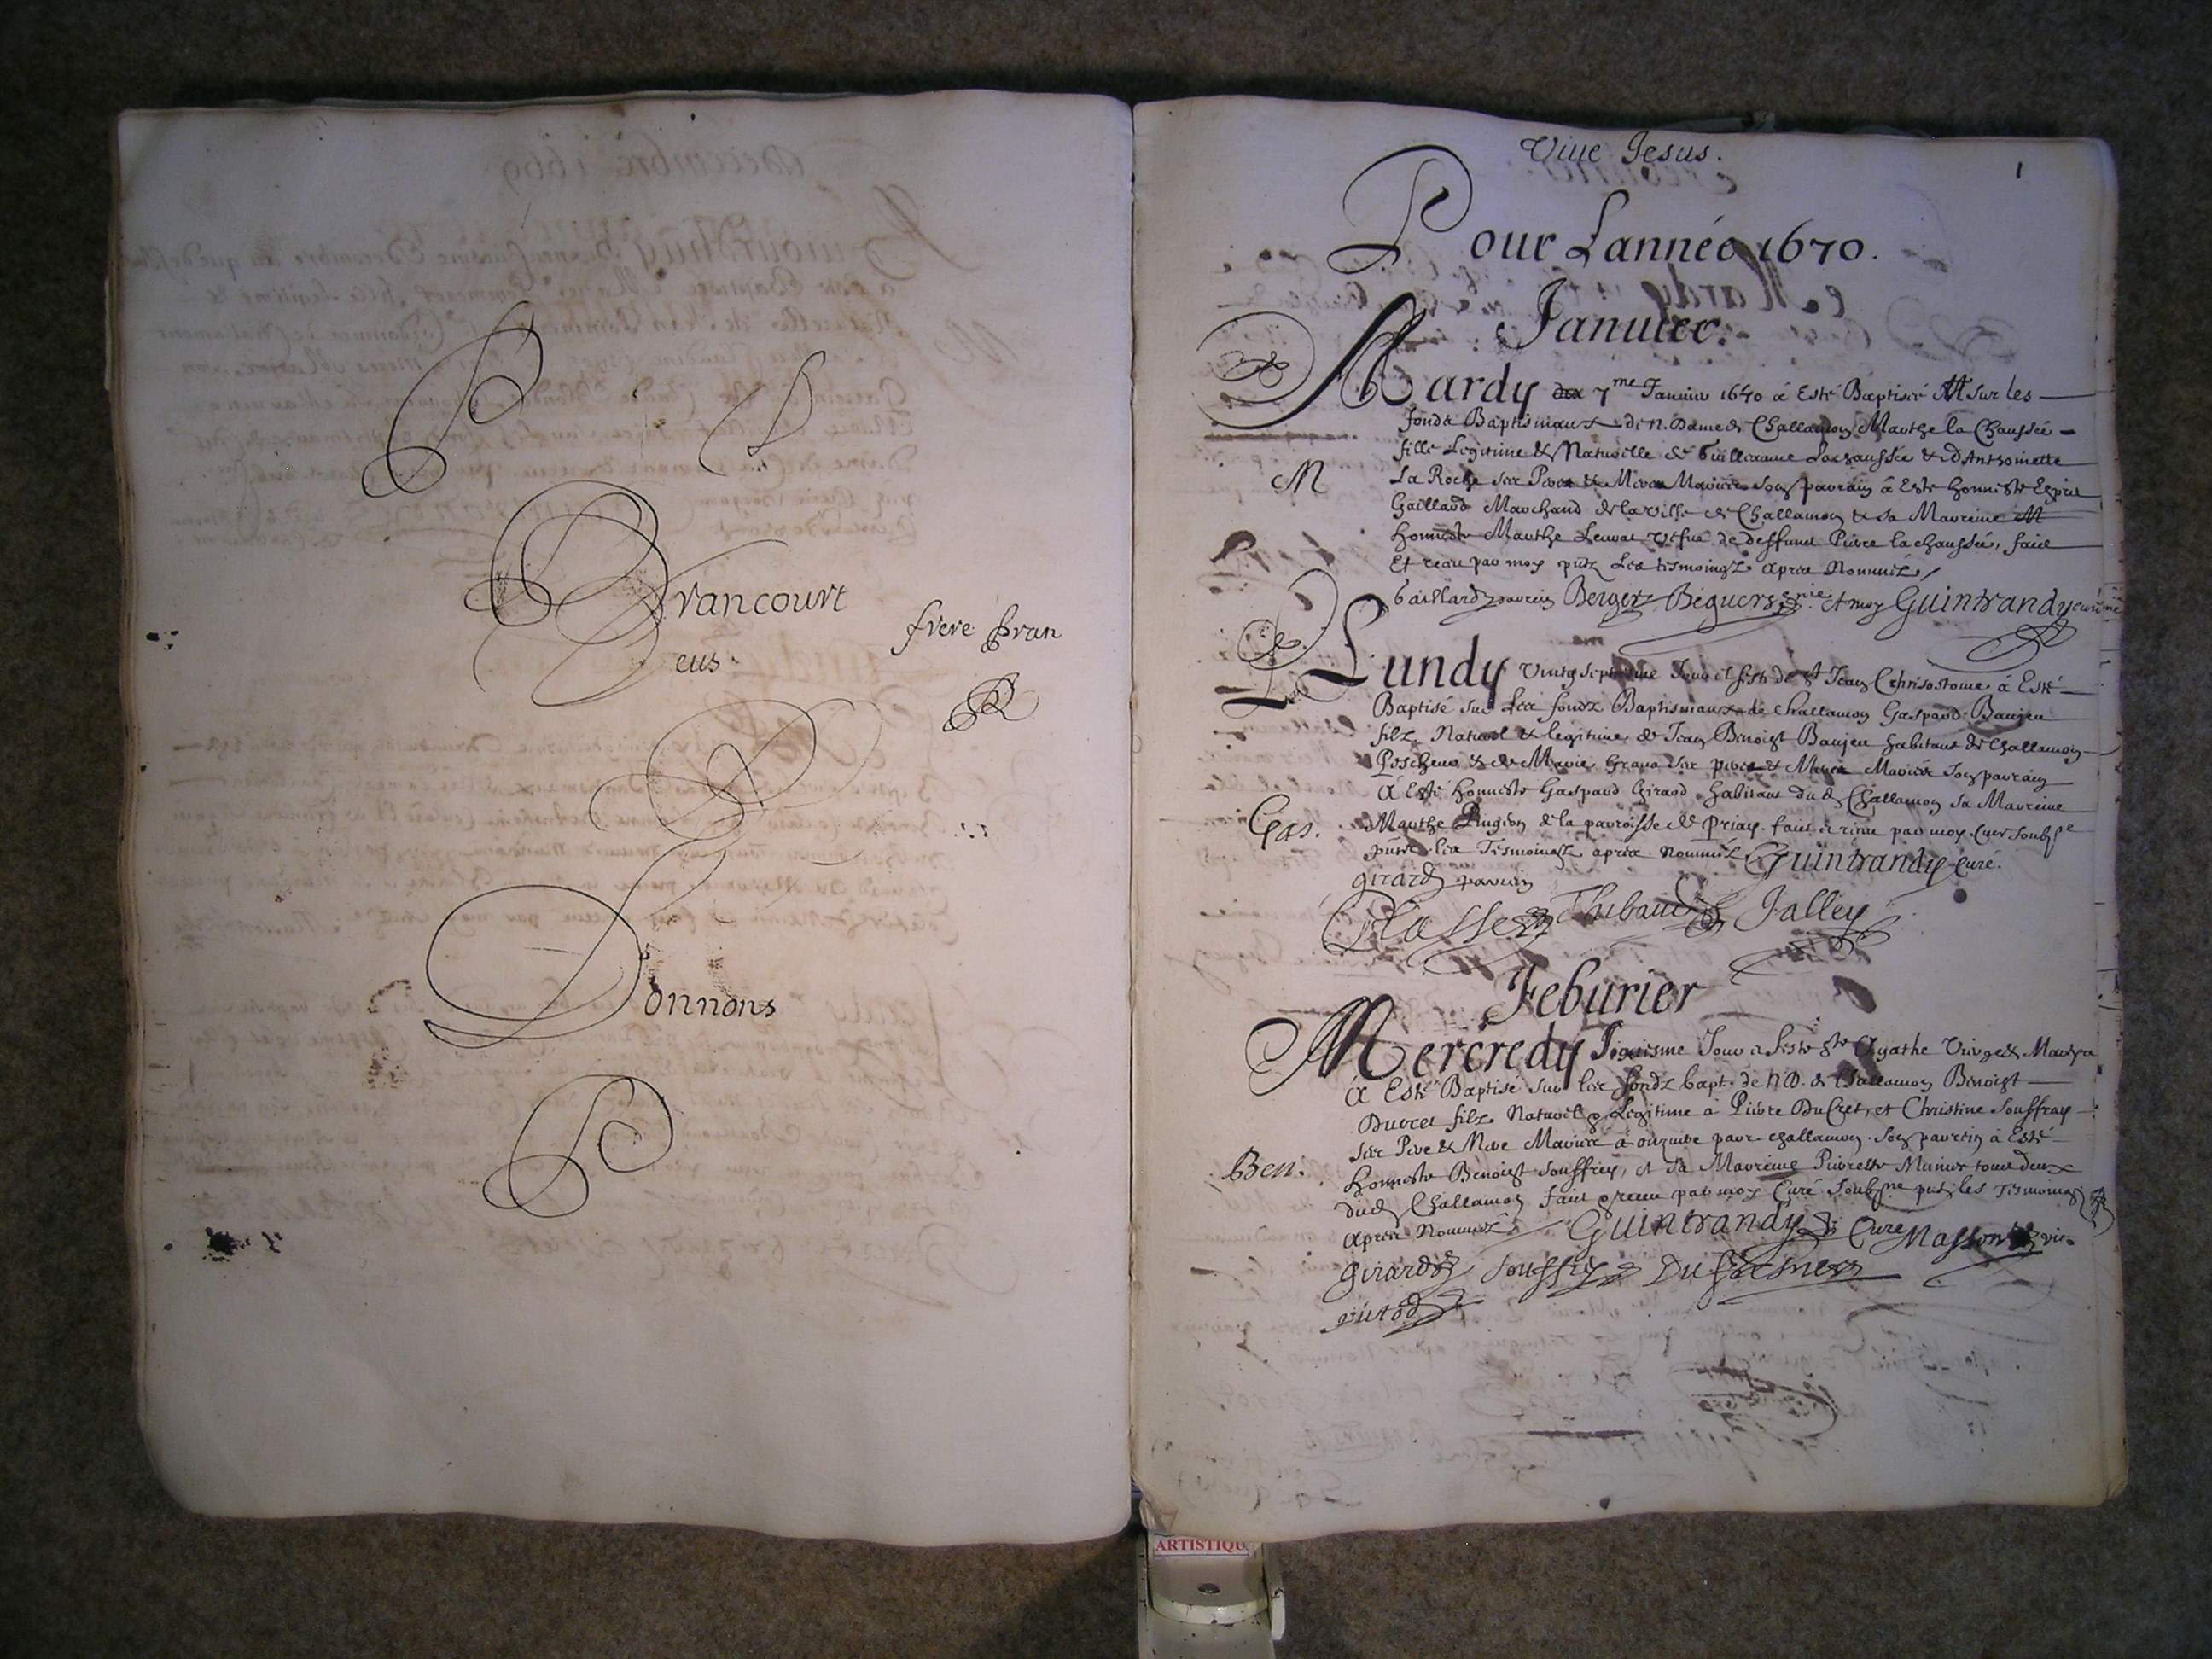 Brancourt
eus
frere fran
Donnons
Viue Jesus.
1
Pour Lannée 1670.
Januier.
Mardy 7me Januier 1670 à Esté Baptisée M sur les
fonds Baptismaux de N. Dame de Challamon Marthe la Chaussée
fille Legitime & Naturelle de Guilleaume Lachaussée & dAnthoinette
La Roche ses Peres & Meres Mariés son parrain à Esté honneste Esprit
M
Gaillard Marchand de la ville de Challamon & sa Marreine M
honneste Marthe vefue de deffunct Pierre la chaussée, faict
Et receu par moy les tesmoingz apres Nommés
Gaillard parrein Berger Beguers et moy Guintrandy curé
Lundy Vingt septiesme Jour et feste de st Jean Chrisostome à Esté
Baptisé sur les fondz Baptismaux de Challamon Gaspard Baujeu
filz Naturel & legitime de Jean Benoist Baujeu habitant de Challamon
Pescheur & de Marie ses peres & Meres Mariés son parrain
à Esté honneste Gaspard Girard habitant dud Challamon sa Marreine
Gas.
Marthe de la parroisse de Priay. faict & receu par moy Curé soubse
les Tesmoingz apres Nommés Guintrandy Curé.
girard parrin
Classe Thibaud Jalley
Feburier
Mercredy Jour et feste ste Agathe Vierge &
à Esté Baptisé sur les fondz bapt. de N.D. de Challamon Benoist
Ducret filz Naturel & Legitime à Pierre DuCret, et Christine souffray
ses Pere & Mere Mariés Challamon. son parrein à Esté
Ben.
honneste Benoist souffrey, et sa Marreine Pierrette Munier tous deux
dud Challamon faict & receu par moy Curé soubsne les Tesmoingz
apres Nommés Guintrandy Curé Masson vic.
girard souffrey Dufresnes